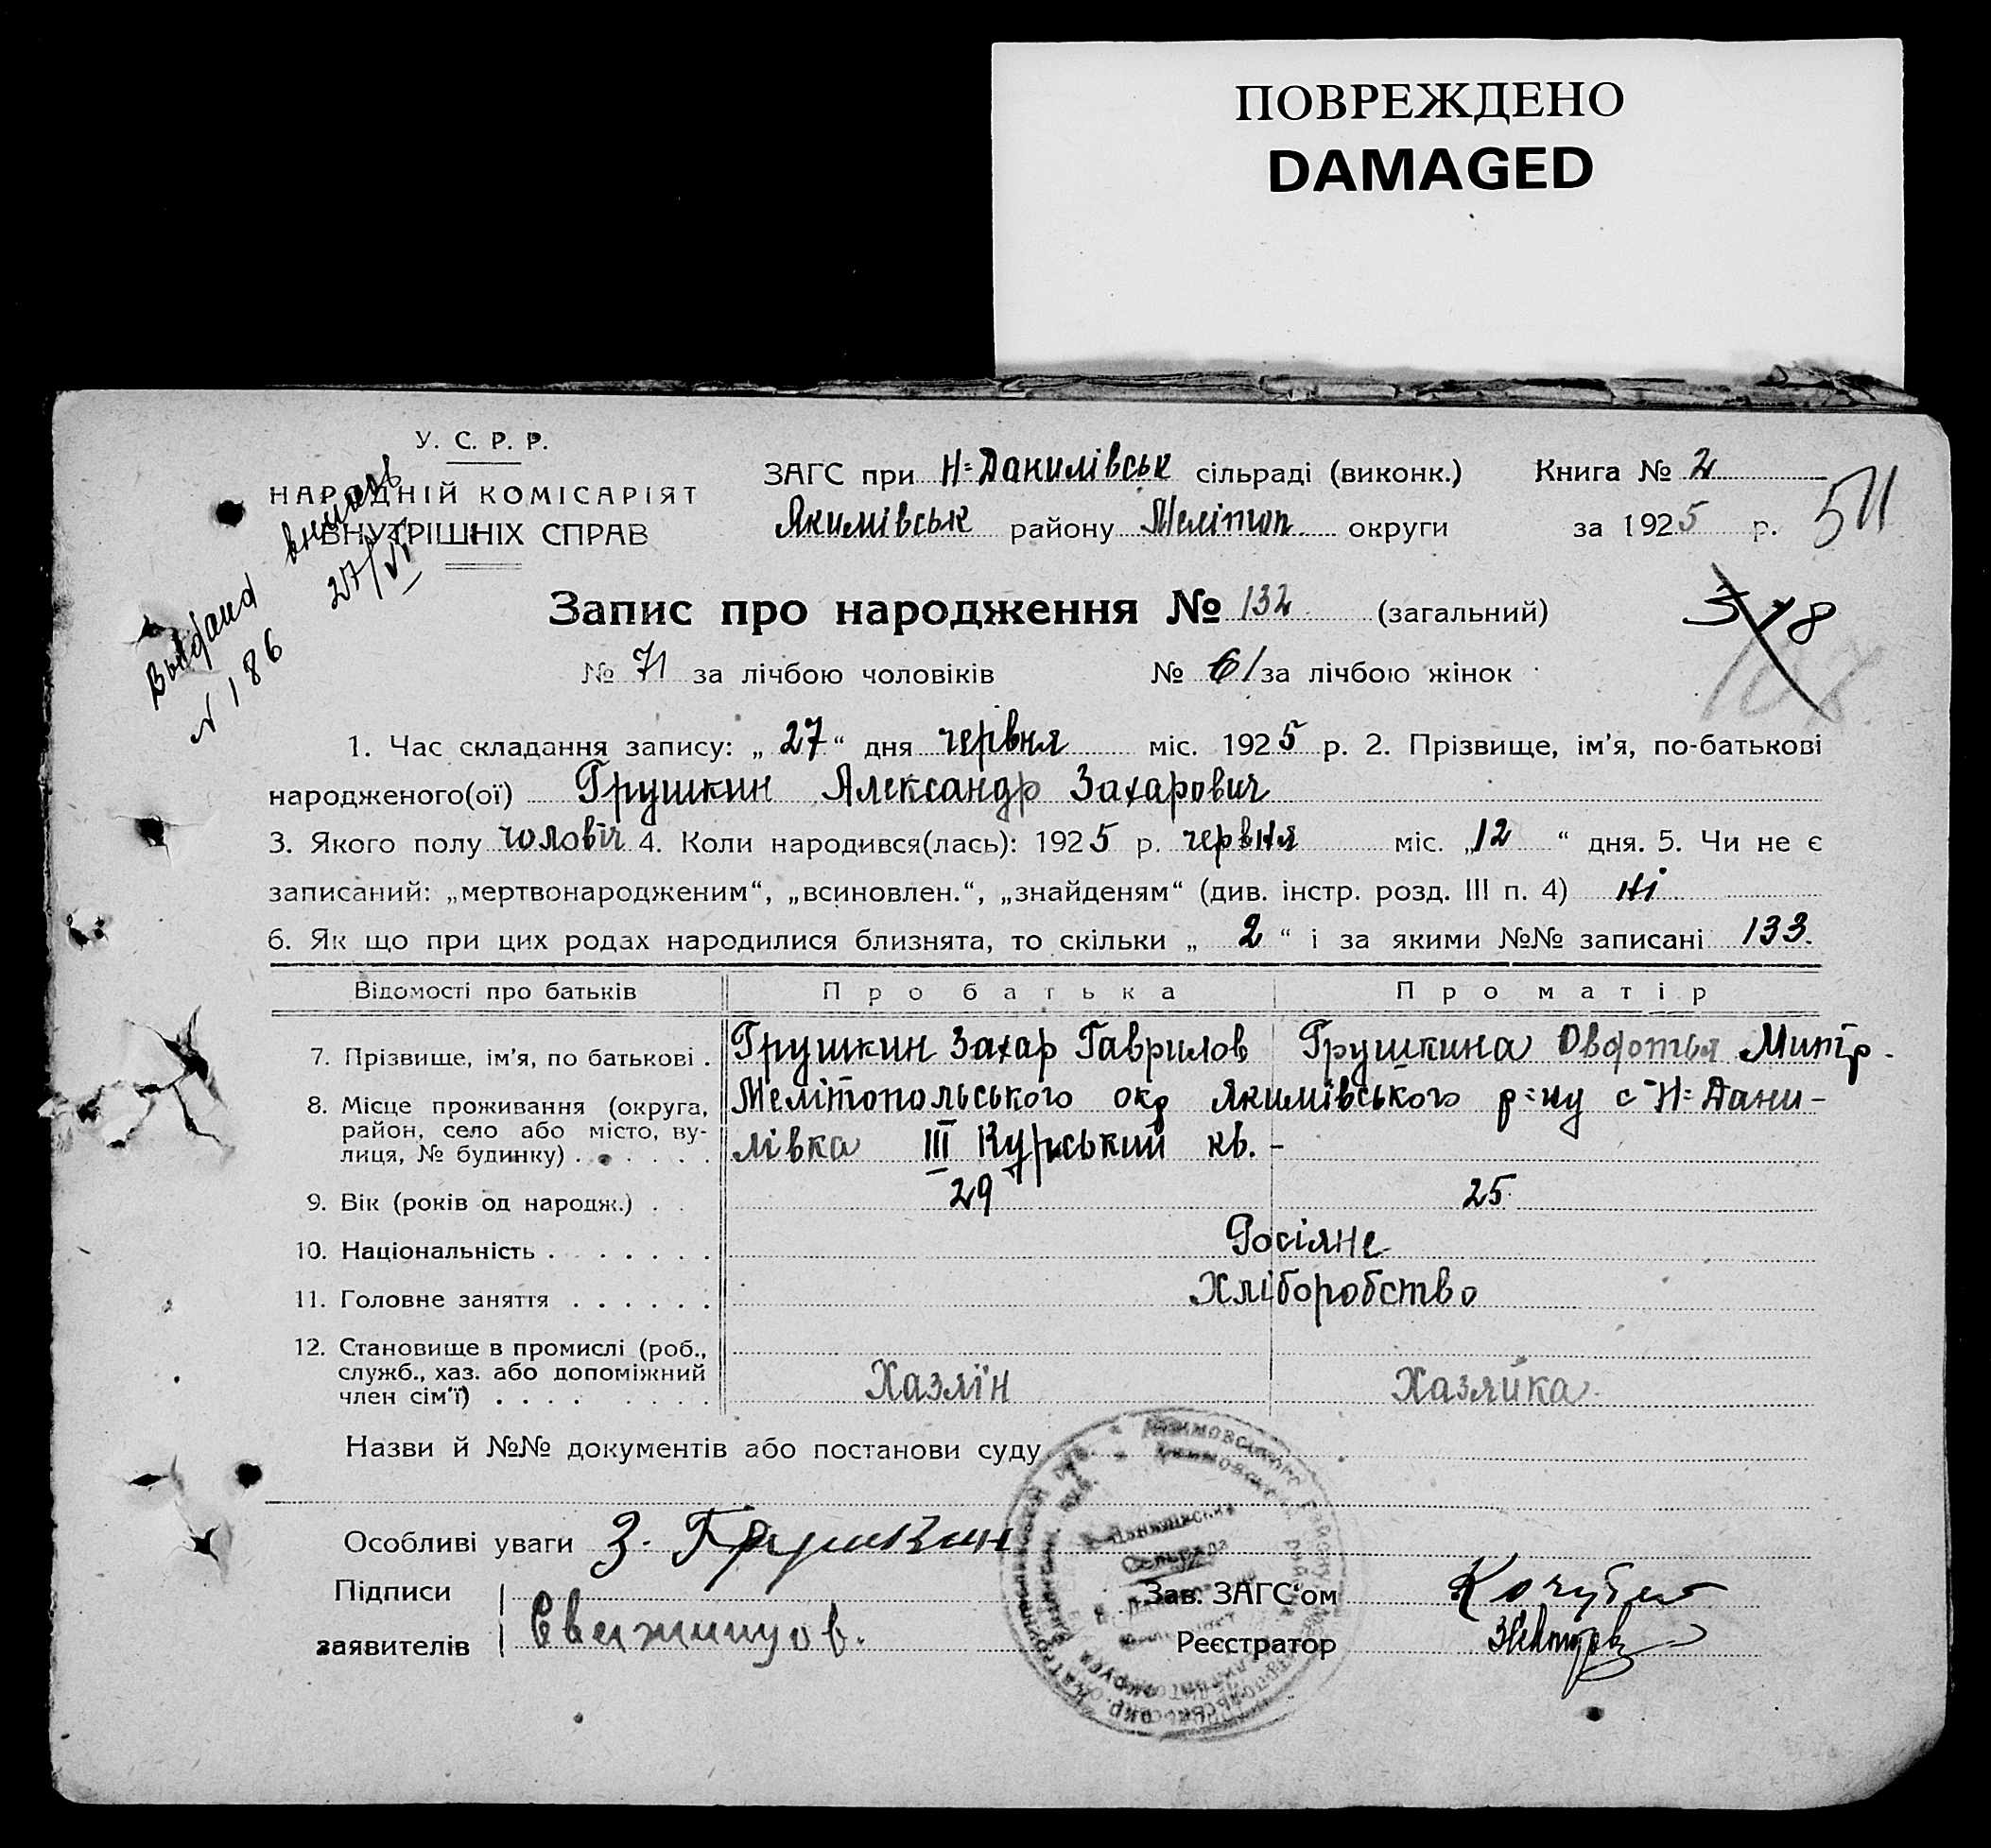 ПОВРЕЖДЕНО
DAMAGED
У. С. Р. Р.
НАРОДНІЙ КОМІСАРІЯТ
ВНУТРІШНІХ СПРАВ
ЗАГС при Н=Данилівськ сільраді (виконк.) Книга № 2
Якимівськ району Меліт​оп. округи за 1925 р.
511
27/VI
№ 186
Запис про народження № 132 (загальний)
318
107
№ 71 за лічбою чоловіків № 61 за лічбою жінок
1. Час складання запису: „ 27 “ дня червня міс. 1925 р. 2. Прізвище, ім’я, по-батькові
народженого(ої) Грушкин Александр Захарович
3. Якого полу чоловіч 4. Коли народився(лась): 1925 р. червня міс. „12 “ дня. 5. Чи не є
записаний: „мертвонародженим“, „всиновлен.“, „знайденям“ (див. інстр. розд. III п. 4) ні
6. Як що при цих родах народилися близнята, то скільки „ 2 “ і за якими №№ записані 133.
Відомості про батьків Про батька Про матір
7. Прізвище, ім’я, по батькові . Грушкин Захар Гаврилов Грушкина Овдотья Митр.
8. Місце проживання (округа, район, село або місто, вулиця, № будинку) . . . . . . Мелітопольського окр Якимівського р=ну с Н=Дани-
лівка III Курський кв. -
9. Вік (років од народж.) . . 29 25
10. Національність . . . . . . . Росіяне
11. Головне заняття . . . . . . Хліборобство
12. Становище в промислі (роб.,
служб., хаз. або допоміжний
член сім’ї) . . . . . . . . Хазяїн Хазяйка
Назви й №№ документів або постанови суду
Особливі уваги З. Грушкин
Підписи Зав. ЗАГС‘ом
заявителів Реєстратор